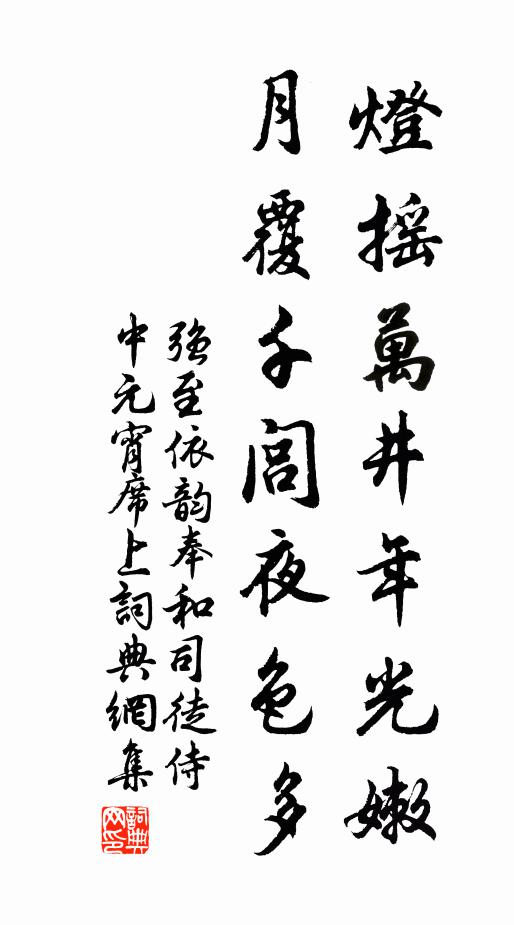 燈摇萬井年光嫩
月覆千閭夜色多
强至依韵奉和司徒侍
中元宵席上詞典網集
詞典網印